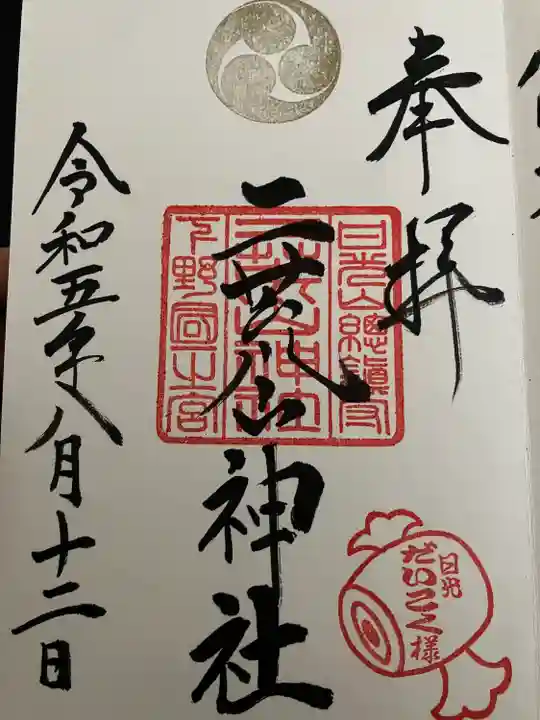 奉拝
日光山總鎮守
二荒山神社
二荒山神社
下野國一之宮
令和五年八月十二日
日光
だいこく様